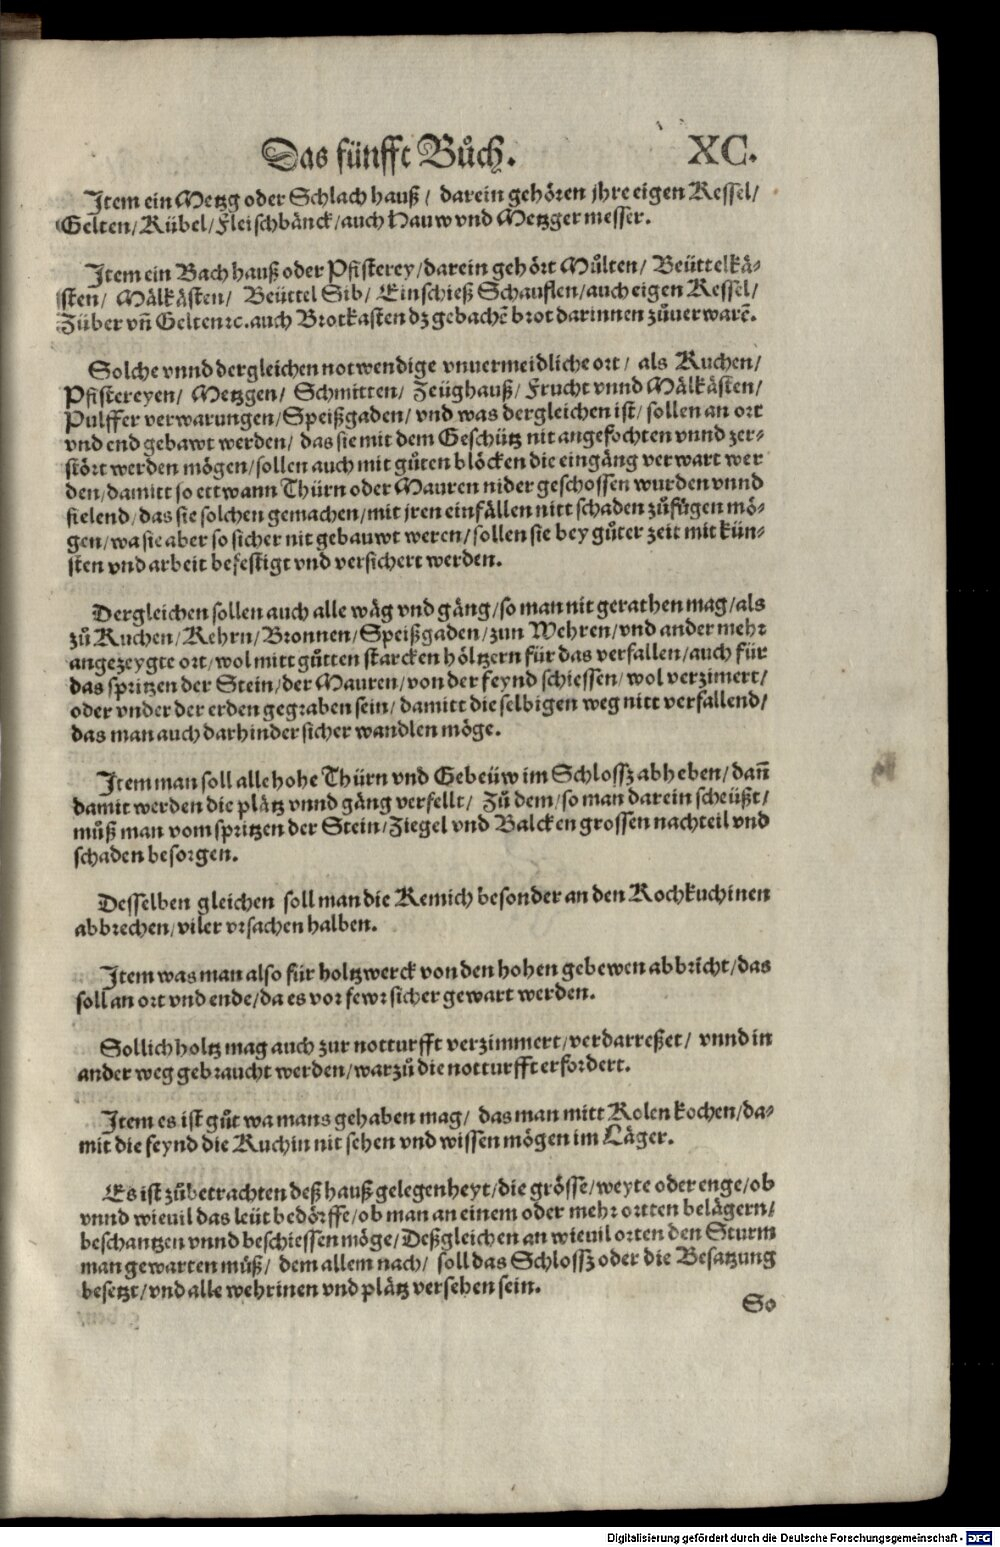 Das fünfft Bůch. XC.
Item ein Metzg oder Schlach hauß / darein gehören jhre eigen Kessel/
Gelten/ Kübel/ Fleischbänck/ auch Hauw vnd Metzger messer.
Item ein Bach hauß oder Pfisterey/ darein gehört Můlten/ Beüttelkä-
sten/ Mälkästen/ Beüttel Sib/ Einschieß Schauflen/ auch eigen Kessel/
Züber vñ Gelten ꝛc. auch Brotkasten dz gebachẽ brot darinnen zůuerwarẽ.
Solche vnnd dergleichen notwendige vnuermeidliche ort/ als Kuchen/
Pfistereyen/ Metzgen/ Schmitten/ Zeüghauß/ Frucht vnnd Mälkästen/
Pulffer verwarungen/ Speißgaden/ vnd was dergleichen ist/ sollen an ort
vnd end gebawt werden/ das sie mit dem Geschütz nit angefochten vnnd zer-
stört werden mögen/ sollen auch mit gůten blöcken die eingäng verwart wer
den/ damitt so ettwann Thürn oder Mauren nider geschossen wurden vnnd
fielend/ das sie solchen gemachen/ mit jren einfällen nitt schaden zůfügen mö-
gen/ wa sie aber so sicher nit gebauwt weren/ sollen sie bey gůter zeit mit kün-
sten vnd arbeit befestigt vnd versichert werden.
Dergleichen sollen auch alle wäg vnd gäng/ so man nit gerathen mag/ als
zů Kuchen/ Kehrn/ Bronnen/ Speißgaden/ zun Wehren/ vnd ander mehr
angezeygte ort/ wol mitt gůtten starcken höltzern für das verfallen/ auch für
das spritzen der Stein/ der Mauren/ von der feynd schiessen/ wol verzimert/
oder vnder der erden gegraben sein/ damitt die selbigen weg nitt verfallend/
das man auch darhinder sicher wandlen möge.
Item man soll alle hohe Thürn vnd Gebeüw im Schlossz abheben/ dañ
damit werden die plätz vnnd gäng verfellt/ Zů dem/ so man darein scheüßt/
můß man vom spritzen der Stein/ Ziegel vnd Balcken grossen nachteil vnd
schaden besorgen.
Desselben gleichen soll man die Kemich besonder an den Kochkuchinen
abbrechen/ viler vrsachen halben.
Item was man also für holtzwerck von den hohen gebewen abbricht/ das
soll an ort vnd ende/ da es vor fewr sicher gewart werden.
Sollich holtz mag auch zur notturfft verzimmert/ verdarreßet/ vnnd in
ander weg gebraucht werden/ warzů die notturfft erfordert.
Item es ist gůt wa mans gehaben mag/ das man mitt Kolen kochen/ da-
mit die feynd die Kuchin nit sehen vnd wissen mögen im Läger.
Es ist zůbetrachten deß hauß gelegenheyt/ die grösse/ weyte oder enge/ ob
vnnd wieuil das leüt bedörffe/ ob man an einem oder mehr ortten belägern/
beschantzen vnnd beschiessen möge/ Deßgleichen an wieuil orten den Sturm
man gewarten můß/ dem allem nach/ soll das Schlossz oder die Besatzung
besetzt/ vnd alle wehrinen vnd plätz versehen sein.
So
Digitalisierung gefördert durch die Deutsche Forschungsgemeinschaft - DFG